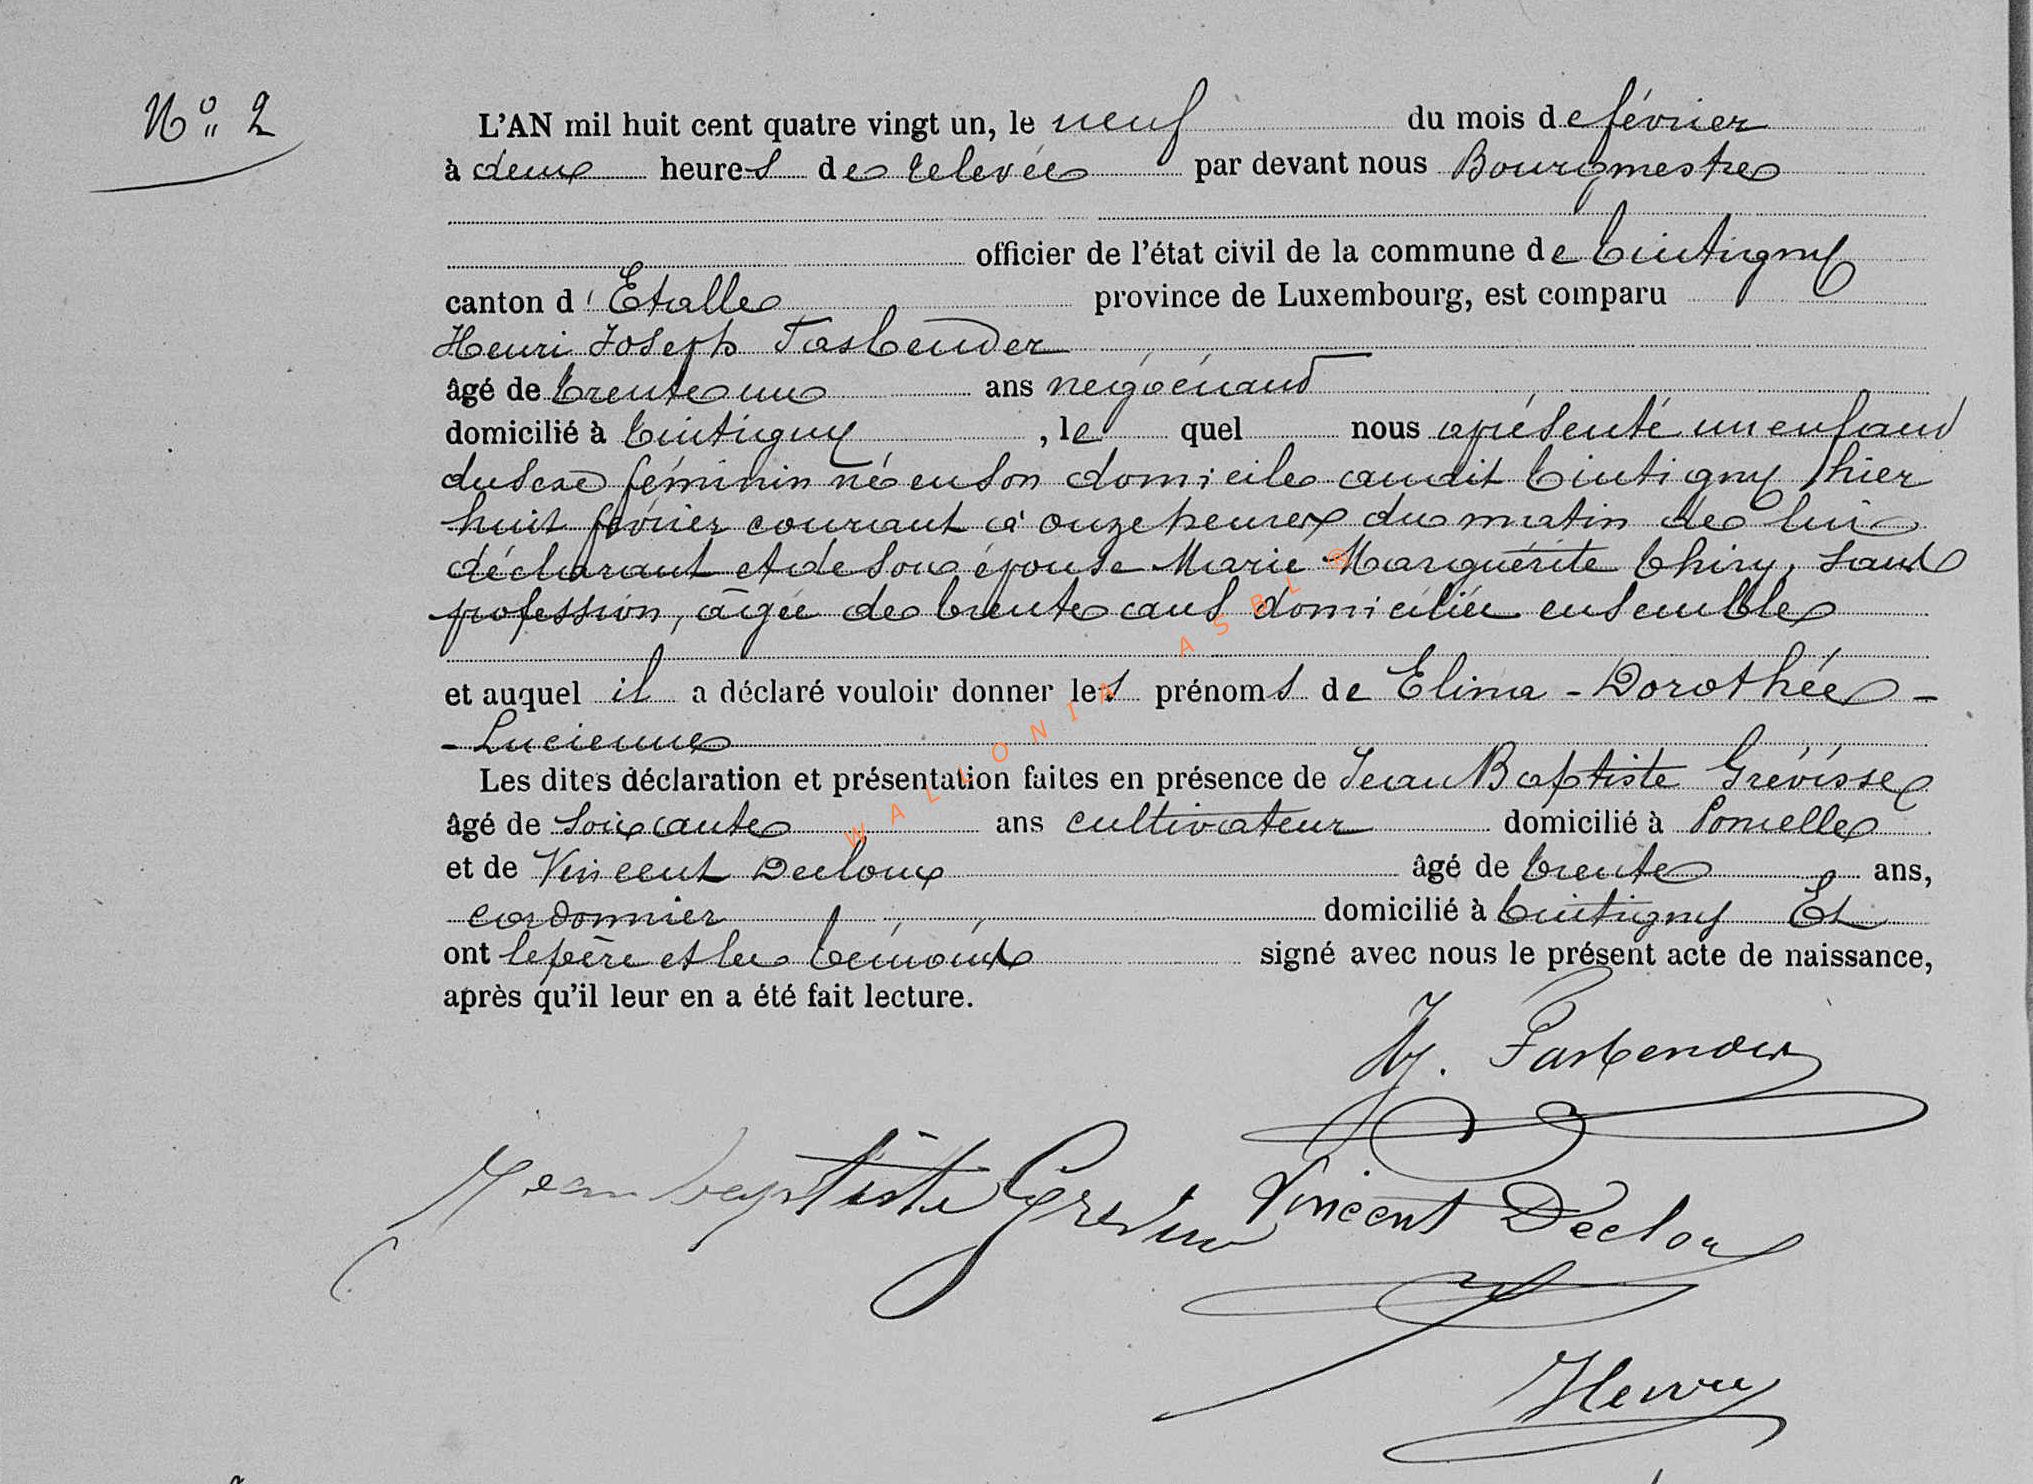 N° 2
L'AN mil huit cent quatre vingt un, le neuf du mois de février
à deux heures de relevée par devant nous Bourgmestre
officier de l'état civil de la commune de Tintigny
canton d' Etalle province de Luxembourg, est comparu
Henri Joseph Fasbender
âgé de trente un ans négociant
domicilié à Tintigny, le quel nous a présenté un enfant
du sexe féminin né en son domicile audit Tintigny hier
huit février courant à onze heures du matin de lui
déclarant et de son épouse Marie Marguérite Thiry, sans
profession, âgée de trente ans domiciliée ensemble
et auquel il a déclaré vouloir donner les prénoms de Elima - Dorothée -
- Lucienne
Les dites déclaration et présentation faites en présence de Jean Baptiste Grévisse
âgé de soixante ans cultivateur domicilié à
et de Vincent Decloux âgé de trente ans,
cordonnier domicilié à Tintigny Et
ont le père et les témoins signé avec nous le présent acte de naissance,
après qu'il leur en a été fait lecture.
Hj. Fasbender
Jean baptiste Grevisse Vincent Decloux
Henry
WALLONIA ASBL ®